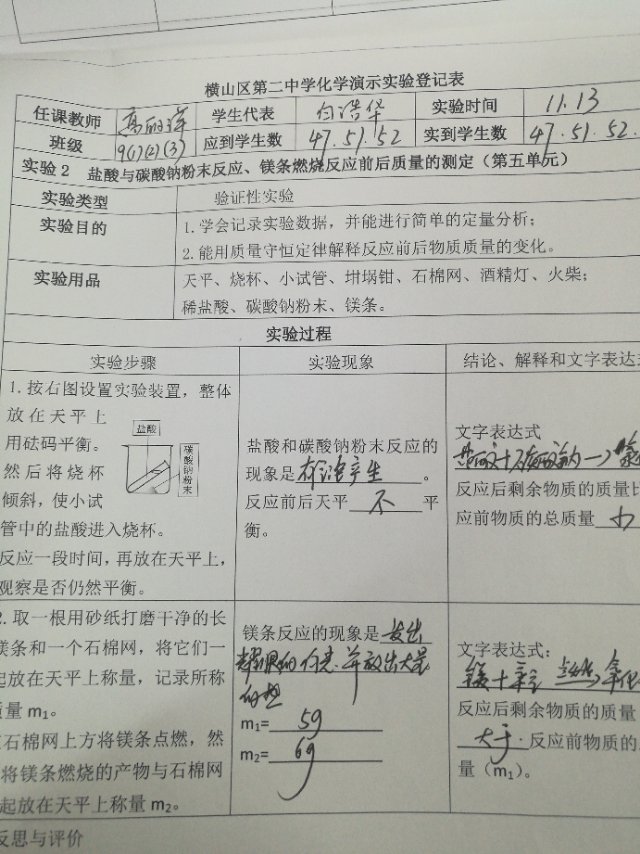 横山区第二中学化学演示实验登记表
任课教师 高丽萍 学生代表 白浩华 实验时间 11.13
班级 9(1)(2)(3) 应到学生数 47.51.52 实到学生数 47.51.52.
实验2 盐酸与碳酸钠粉末反应、镁条燃烧反应前后质量的测定（第五单元）
实验类型 验证性实验
实验目的 1.学会记录实验数据，并能进行简单的定量分析；
2.能用质量守恒定律解释反应前后物质质量的变化。
实验用品 天平、烧杯、小试管、坩埚钳、石棉网、酒精灯、火柴；
稀盐酸、碳酸钠粉末、镁条。
实验过程
实验步骤 实验现象 结论、解释和文字表达
1.按右图设置实验装置，整体
放在天平上
用砝码平衡。
然后将烧杯
倾斜，使小试
管中的盐酸进入烧杯。
反应一段时间，再放在天平上，
观察是否仍然平衡。
盐酸
碳酸钠粉末
盐酸和碳酸钠粉末反应的
现象是有气泡产生。
反应前后天平 不 平
衡。
文字表达式
盐酸+碳酸钠→氯
反应后剩余物质的质量比
应前物质的总质量 小
2.取一根用砂纸打磨干净的长
镁条和一个石棉网，将它们一
起放在天平上称量，记录所称
质量m₁。
在石棉网上方将镁条点燃，然
将镁条燃烧的产物与石棉网
起放在天平上称量m₂。
镁条反应的现象是 发出
耀眼的白光，并放出大量
的热
m₁= 5g
m₂= 6g
文字表达式：
镁+氧气 点燃 氧化
反应后剩余物质的质量
大于 反应前物质的
量（m₁）。
反思与评价